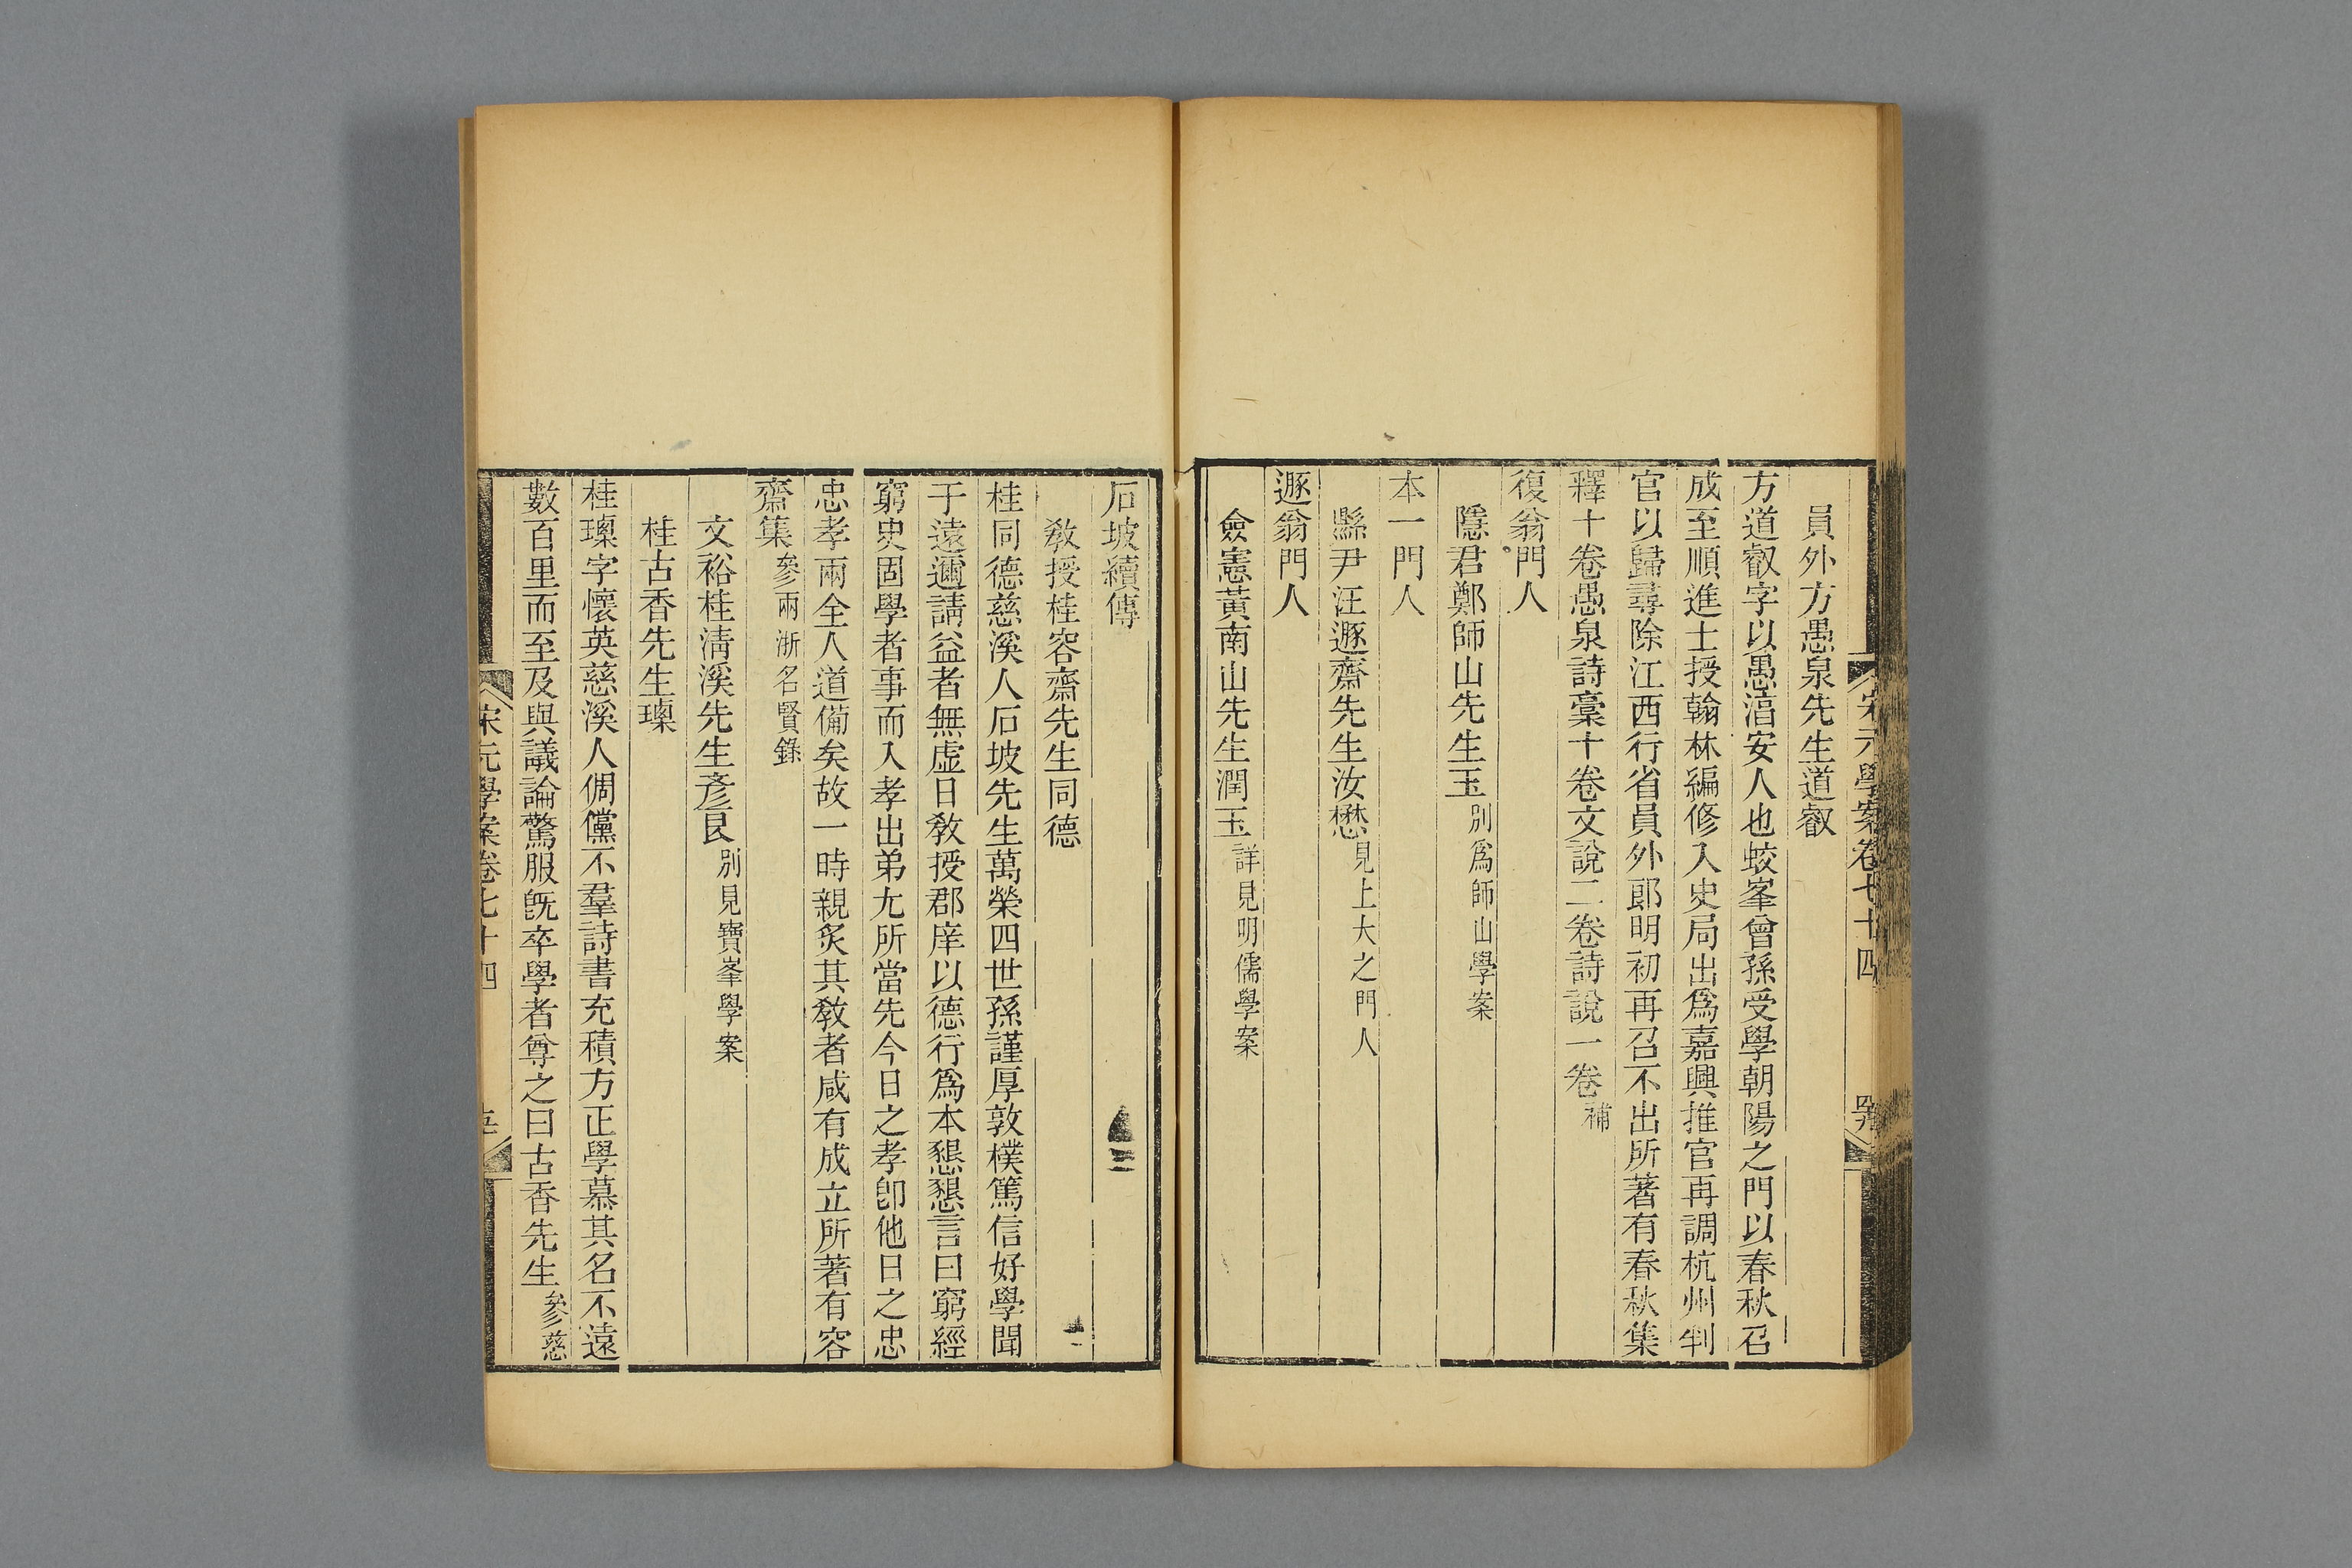 宋元學案卷七十四
員外方愚泉先生道叡
方道叡字以愚湻安人也蛟峯曾孫受學朝陽之門以春秋召
成至順進士授翰林編修入史局出爲嘉興推官再調杭州判
官以歸尋除江西行省員外郎明初再召不出所著有春秋集
釋十卷愚泉詩稾十卷文說二卷詩說一卷補
復翁門人
隱君鄭師山先生玉別爲師山學案
本一門人
縣尹汪遯齋先生汝懋見上大之門人
遯翁門人
僉憲黃南山先生潤玉詳見明儒學案
石坡續傳
敎授桂容齋先生同德
桂同德慈溪人石坡先生萬榮四世孫謹厚敦樸篤信好學聞
于遠邇請益者無虛日敎授郡庠以德行爲本懇懇言曰窮經
窮史固學者事而入孝出弟尤所當先今日之孝卽他日之忠
忠孝兩全人道備矣故一時親炙其敎者咸有成立所著有容
齋集參兩浙名賢錄
文裕桂淸溪先生彥良別見寶峯學案
桂古香先生瓅
桂瓅字懷英慈溪人倜儻不羣詩書充積方正學慕其名不遠
數百里而至及與議論驚服旣卒學者尊之曰古香先生參慈
宋元學案卷七十四